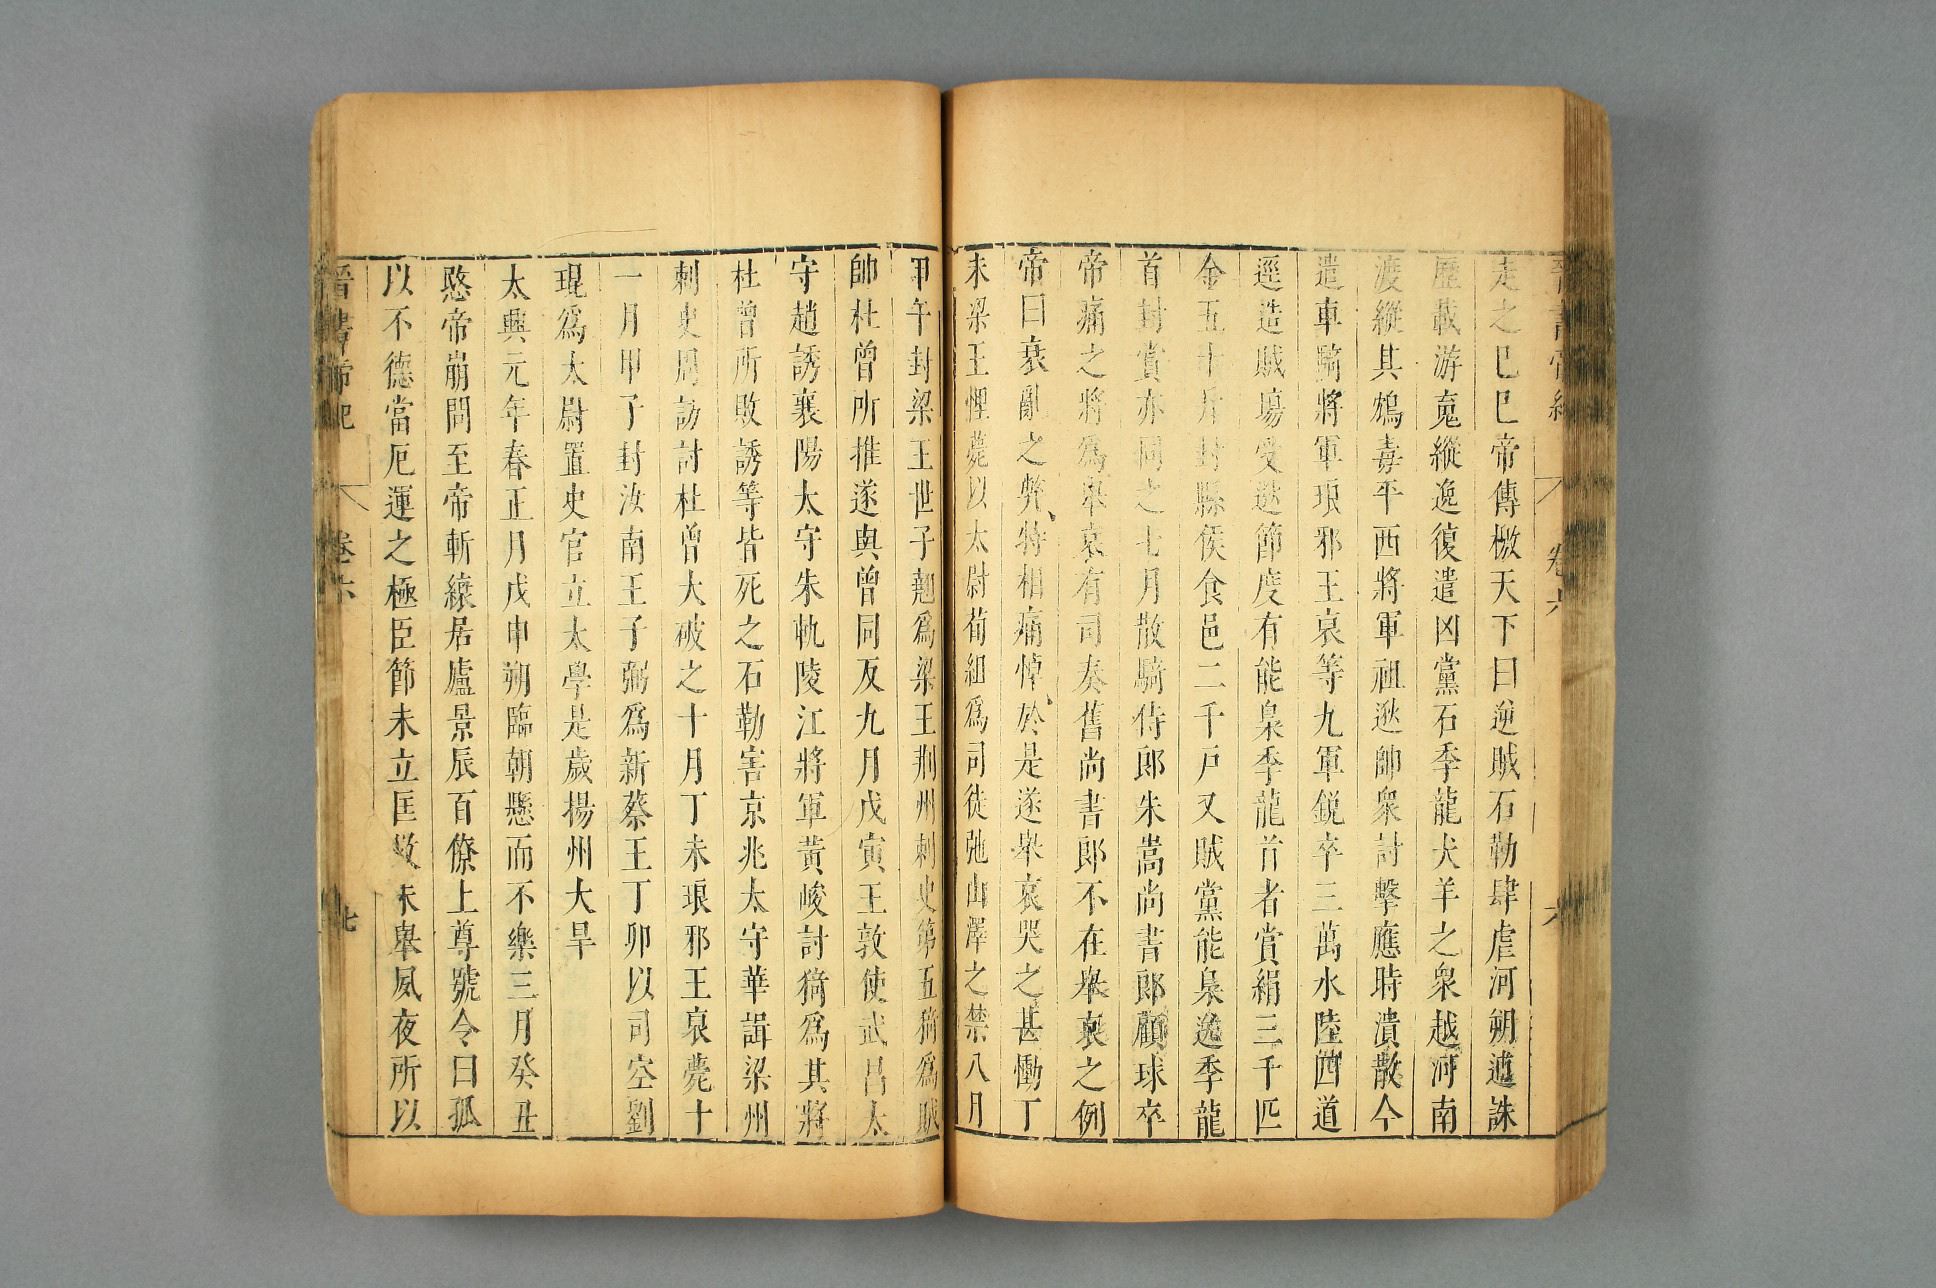 晉書帝紀 卷六 六
走之己巳帝傳檄天下曰逆賊石勒肆虐河朔逋誅
歷載游䰟縱逸復遣凶黨石季龍犬羊之衆越河南
渡縱其鴆毒平西將軍祖逖帥衆討擊應時潰散今
遣車騎將軍琅邪王裒等九軍銳卒三萬水陸四道
逕造賊場受逖節度有能梟季龍首者賞絹三千匹
金五十斤封縣侯食邑二千戸又賊黨能梟送季龍
首封賞亦同之七月散騎侍郎朱嵩尚書郎顧球卒
帝痛之將爲舉哀有司奏舊尚書郎不在舉哀之例
帝曰衰亂之弊特相痛悼於是遂舉哀哭之甚慟丁
未梁王悝薨以太尉荀組爲司徒弛山澤之禁八月
甲午封梁王世子翹爲梁王荆州刺史第五猗爲賊
帥杜曾所推遂與曾同反九月戊寅王敦使武昌太
守趙誘襄陽太守朱軌陵江將軍黃峻討猗爲其將
杜曾所敗誘等皆死之石勒害京兆太守華諿梁州
刺史周訪討杜曾大破之十月丁未琅邪王裒薨十
一月甲子封汝南王子弼爲新蔡王丁卯以司空劉
琨爲太尉置史官立太學是歲揚州大旱
太興元年春正月戊申朔臨朝懸而不樂三月癸丑
愍帝崩問至帝斬縗居廬景辰百僚上尊號令曰孤
以不德當厄運之極臣節未立匡救未舉夙夜所以
晉書帝紀 卷六 七